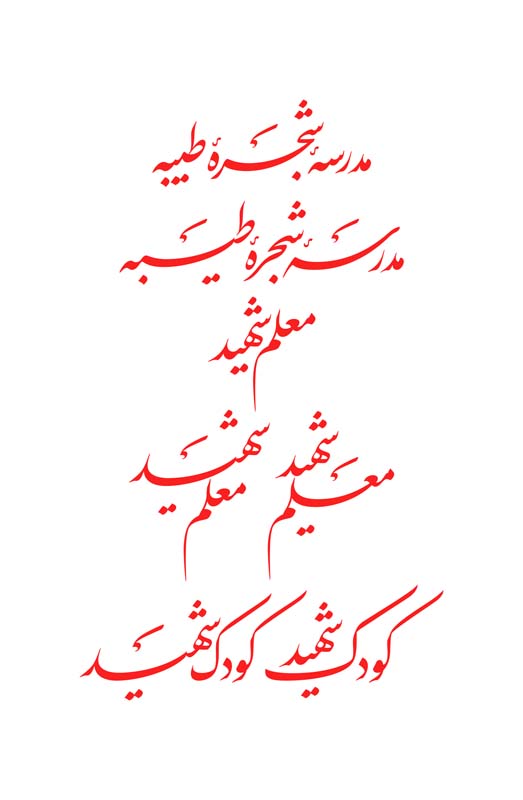 مدرسهٔ شجرهٔ طیبه
مدرسهٔ شجرهٔ طیبه
معلم شهید
شهید معلم شهید معلم
کودک شهید کودک شهید